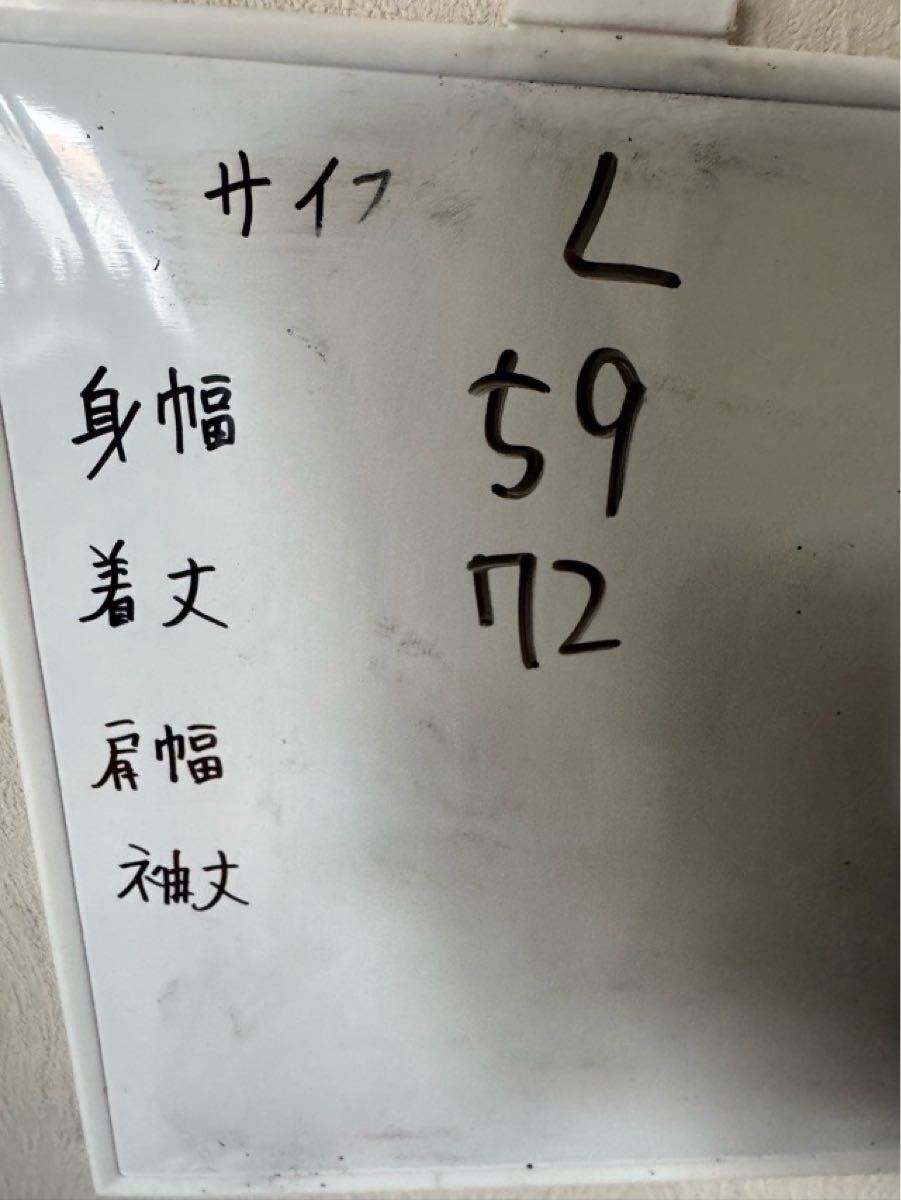 サイフ L
身幅 59
着丈 72
肩幅
袖丈